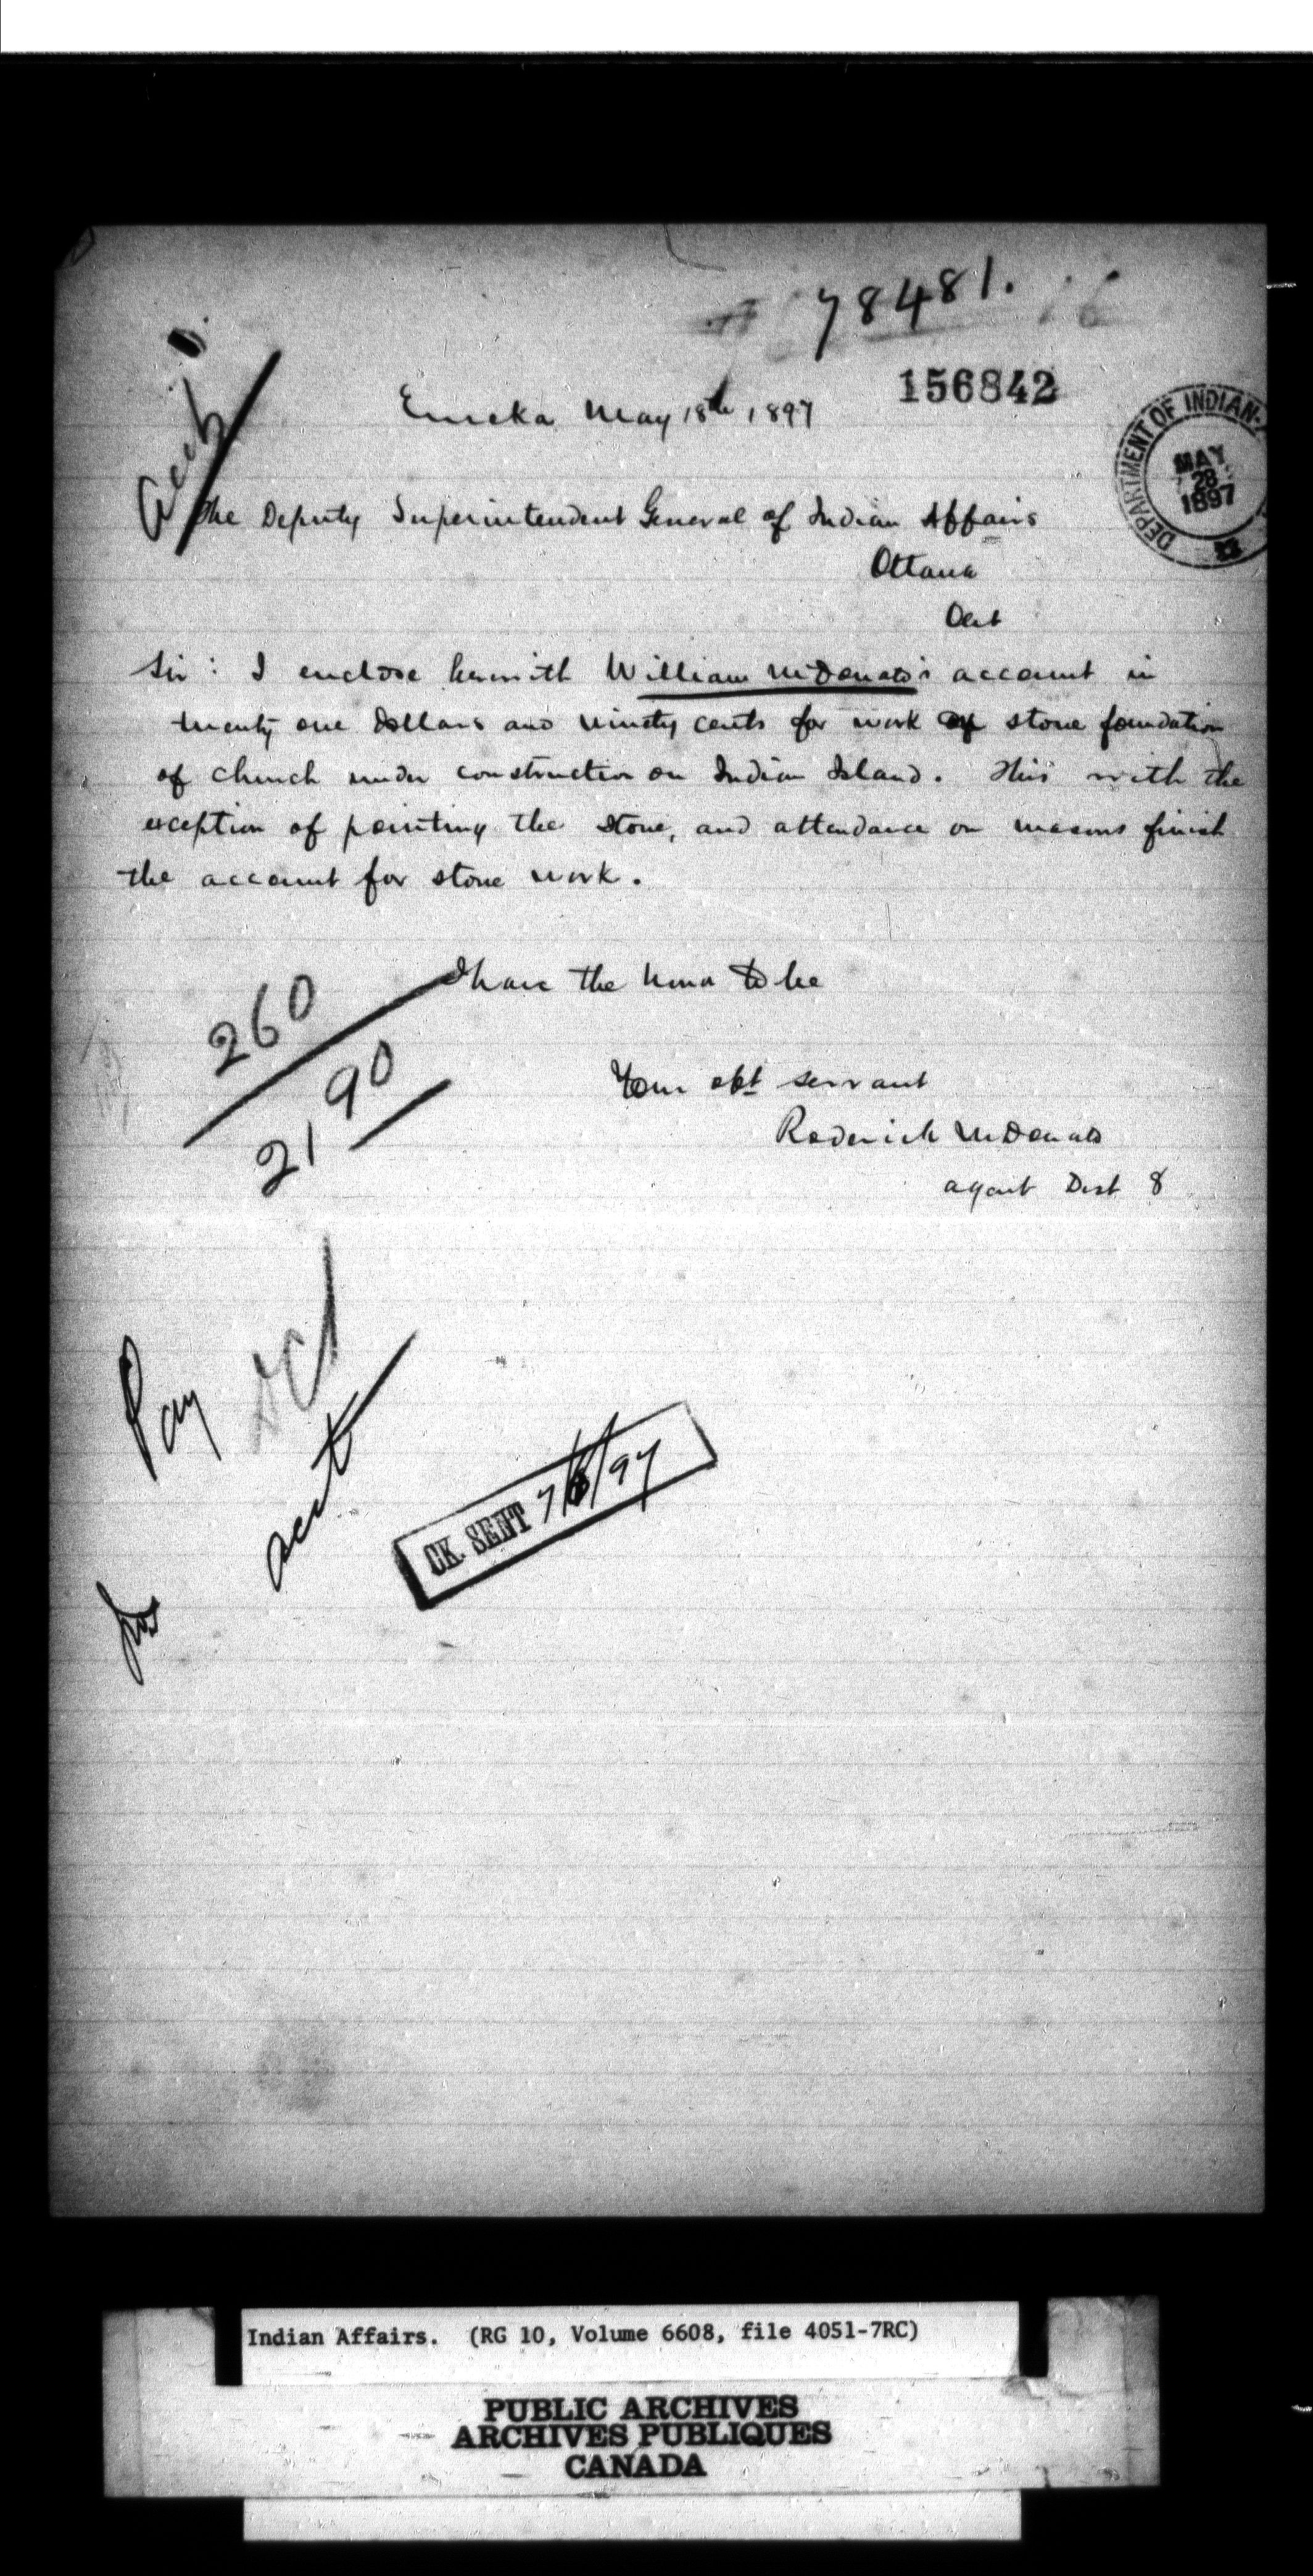 78481.
156842
Acct
Eureka May 18th 1897
DEPARTMENT OF INDIAN
MAY
28
1897
The Deputy Superintendent General of Indian Affairs
Ottawa
Ont
Sir: I enclose herewith William McDonald's account in
twenty one dollars and ninety cents for work of stone foundation
of church under construction on Indian Island. This with the
exception of pointing the stone, and attendance on masons finish
the account for stone work.
I have the honor to be
260
21 90
Your obt servant
Roderick McDonald
agent Dist 8
Pay
acct
CK. SENT 7/6/97
Indian Affairs. (RG 10, Volume 6608, file 4051-7RC)
PUBLIC ARCHIVES
ARCHIVES PUBLIQUES
CANADA